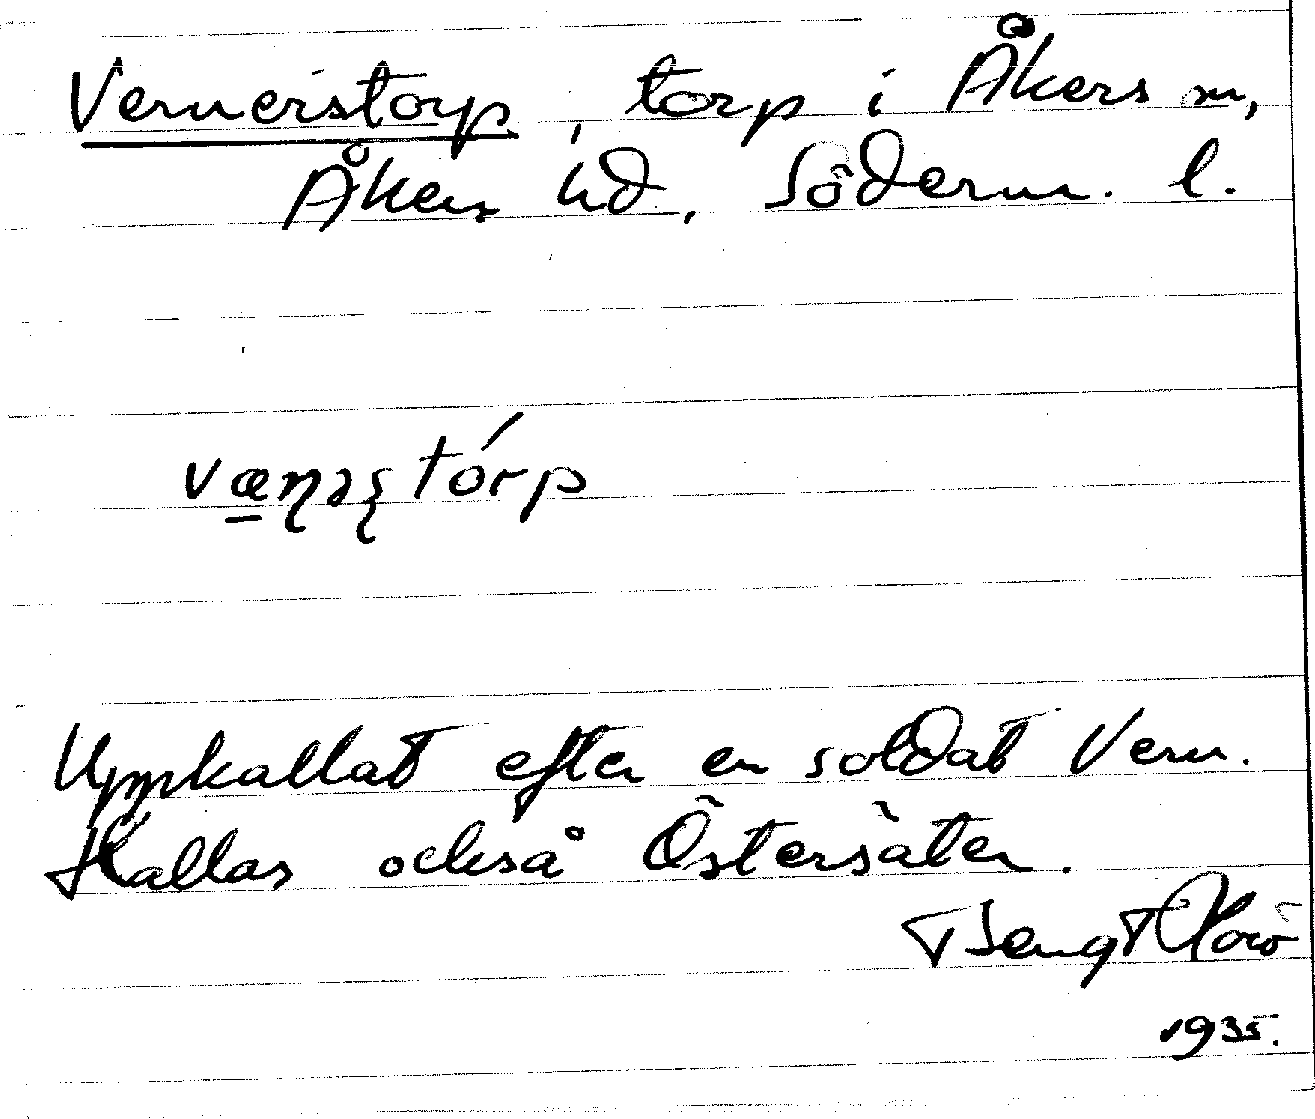 Vernerstorp, torp i Åkers sn,
Åkers hd, Söderm. l.
væɳəʂtórp
Uppkallat efter en soldat Vern.
Kallas också Östersäter.
Bengt
1935.